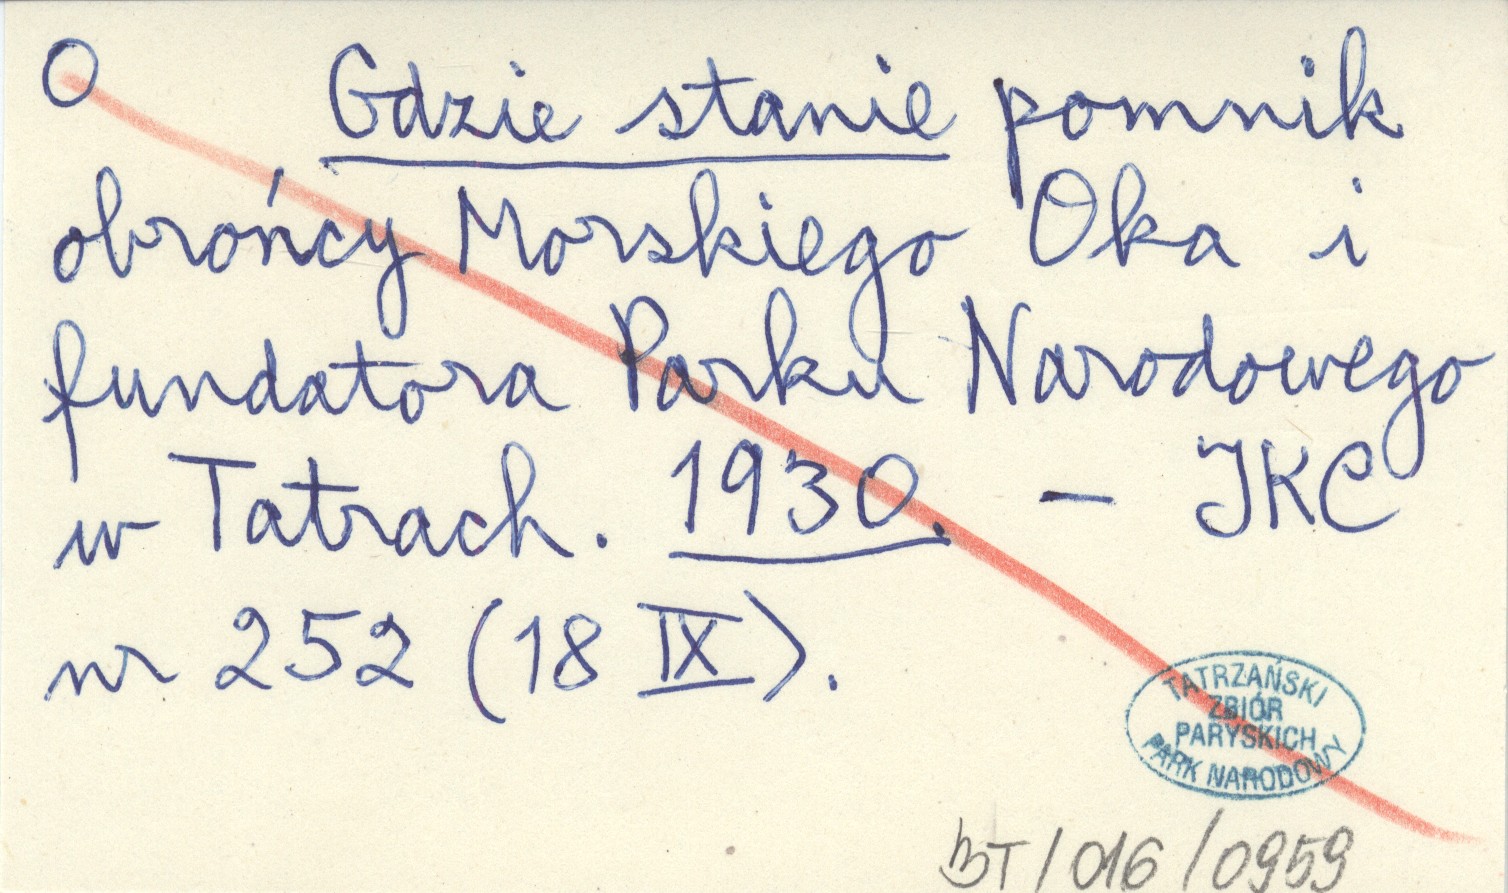 O Gdzie stanie pomnik
obrońcy Morskiego Oka i
fundatora Parku Narodowego
w Tatrach. 1930. – IKC
nr 252 (18 IX).
TATRZAŃSKI
ZBIÓR
PARYSKICH
PARK NARODOWY
BT/016/0959